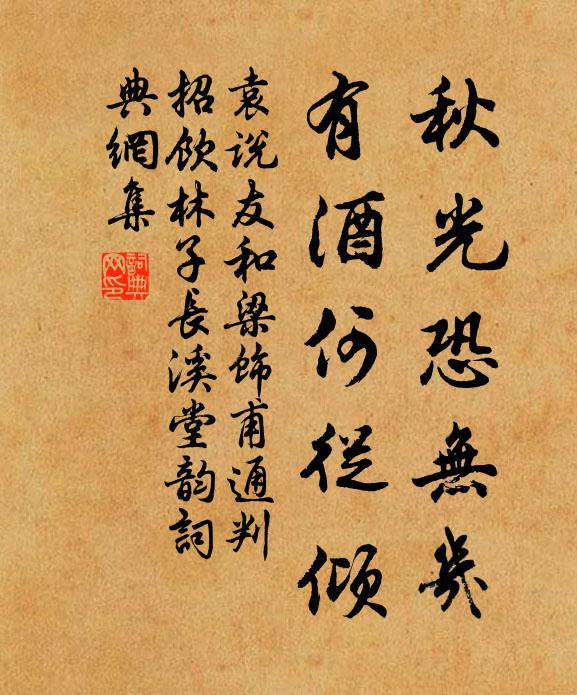 秋光恐無幾
有酒何從傾
袁說友和梁飾甫通判
招飲林子長溪堂韵詞
典網集
詞典網印